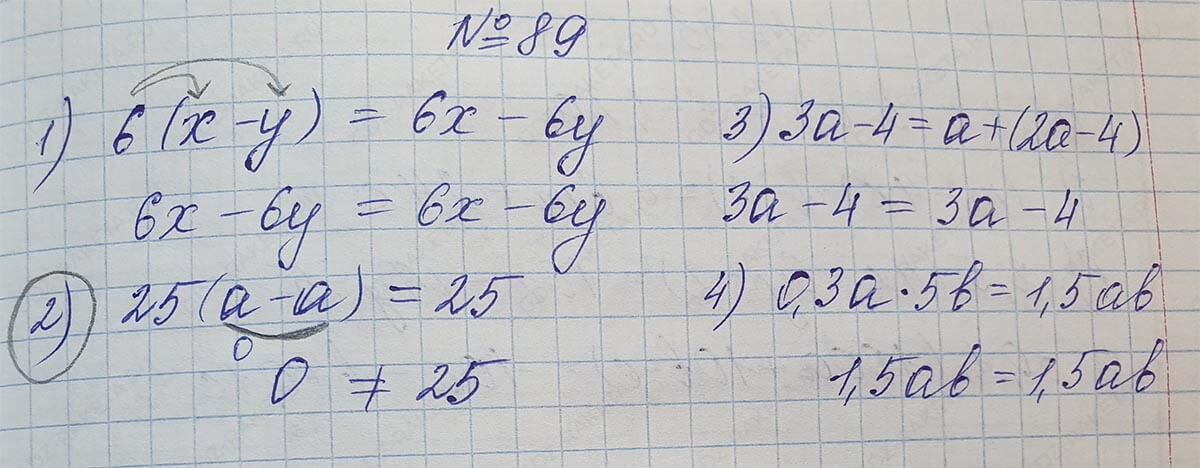 №89
1) 6(x-y) = 6x - 6y
6x - 6y = 6x - 6y
2) 25(a-a) = 25
0
0 ≠ 25
3) 3a-4 = a+(2a-4)
3a-4 = 3a-4
4) 0,3a·5b = 1,5ab
1,5ab = 1,5ab